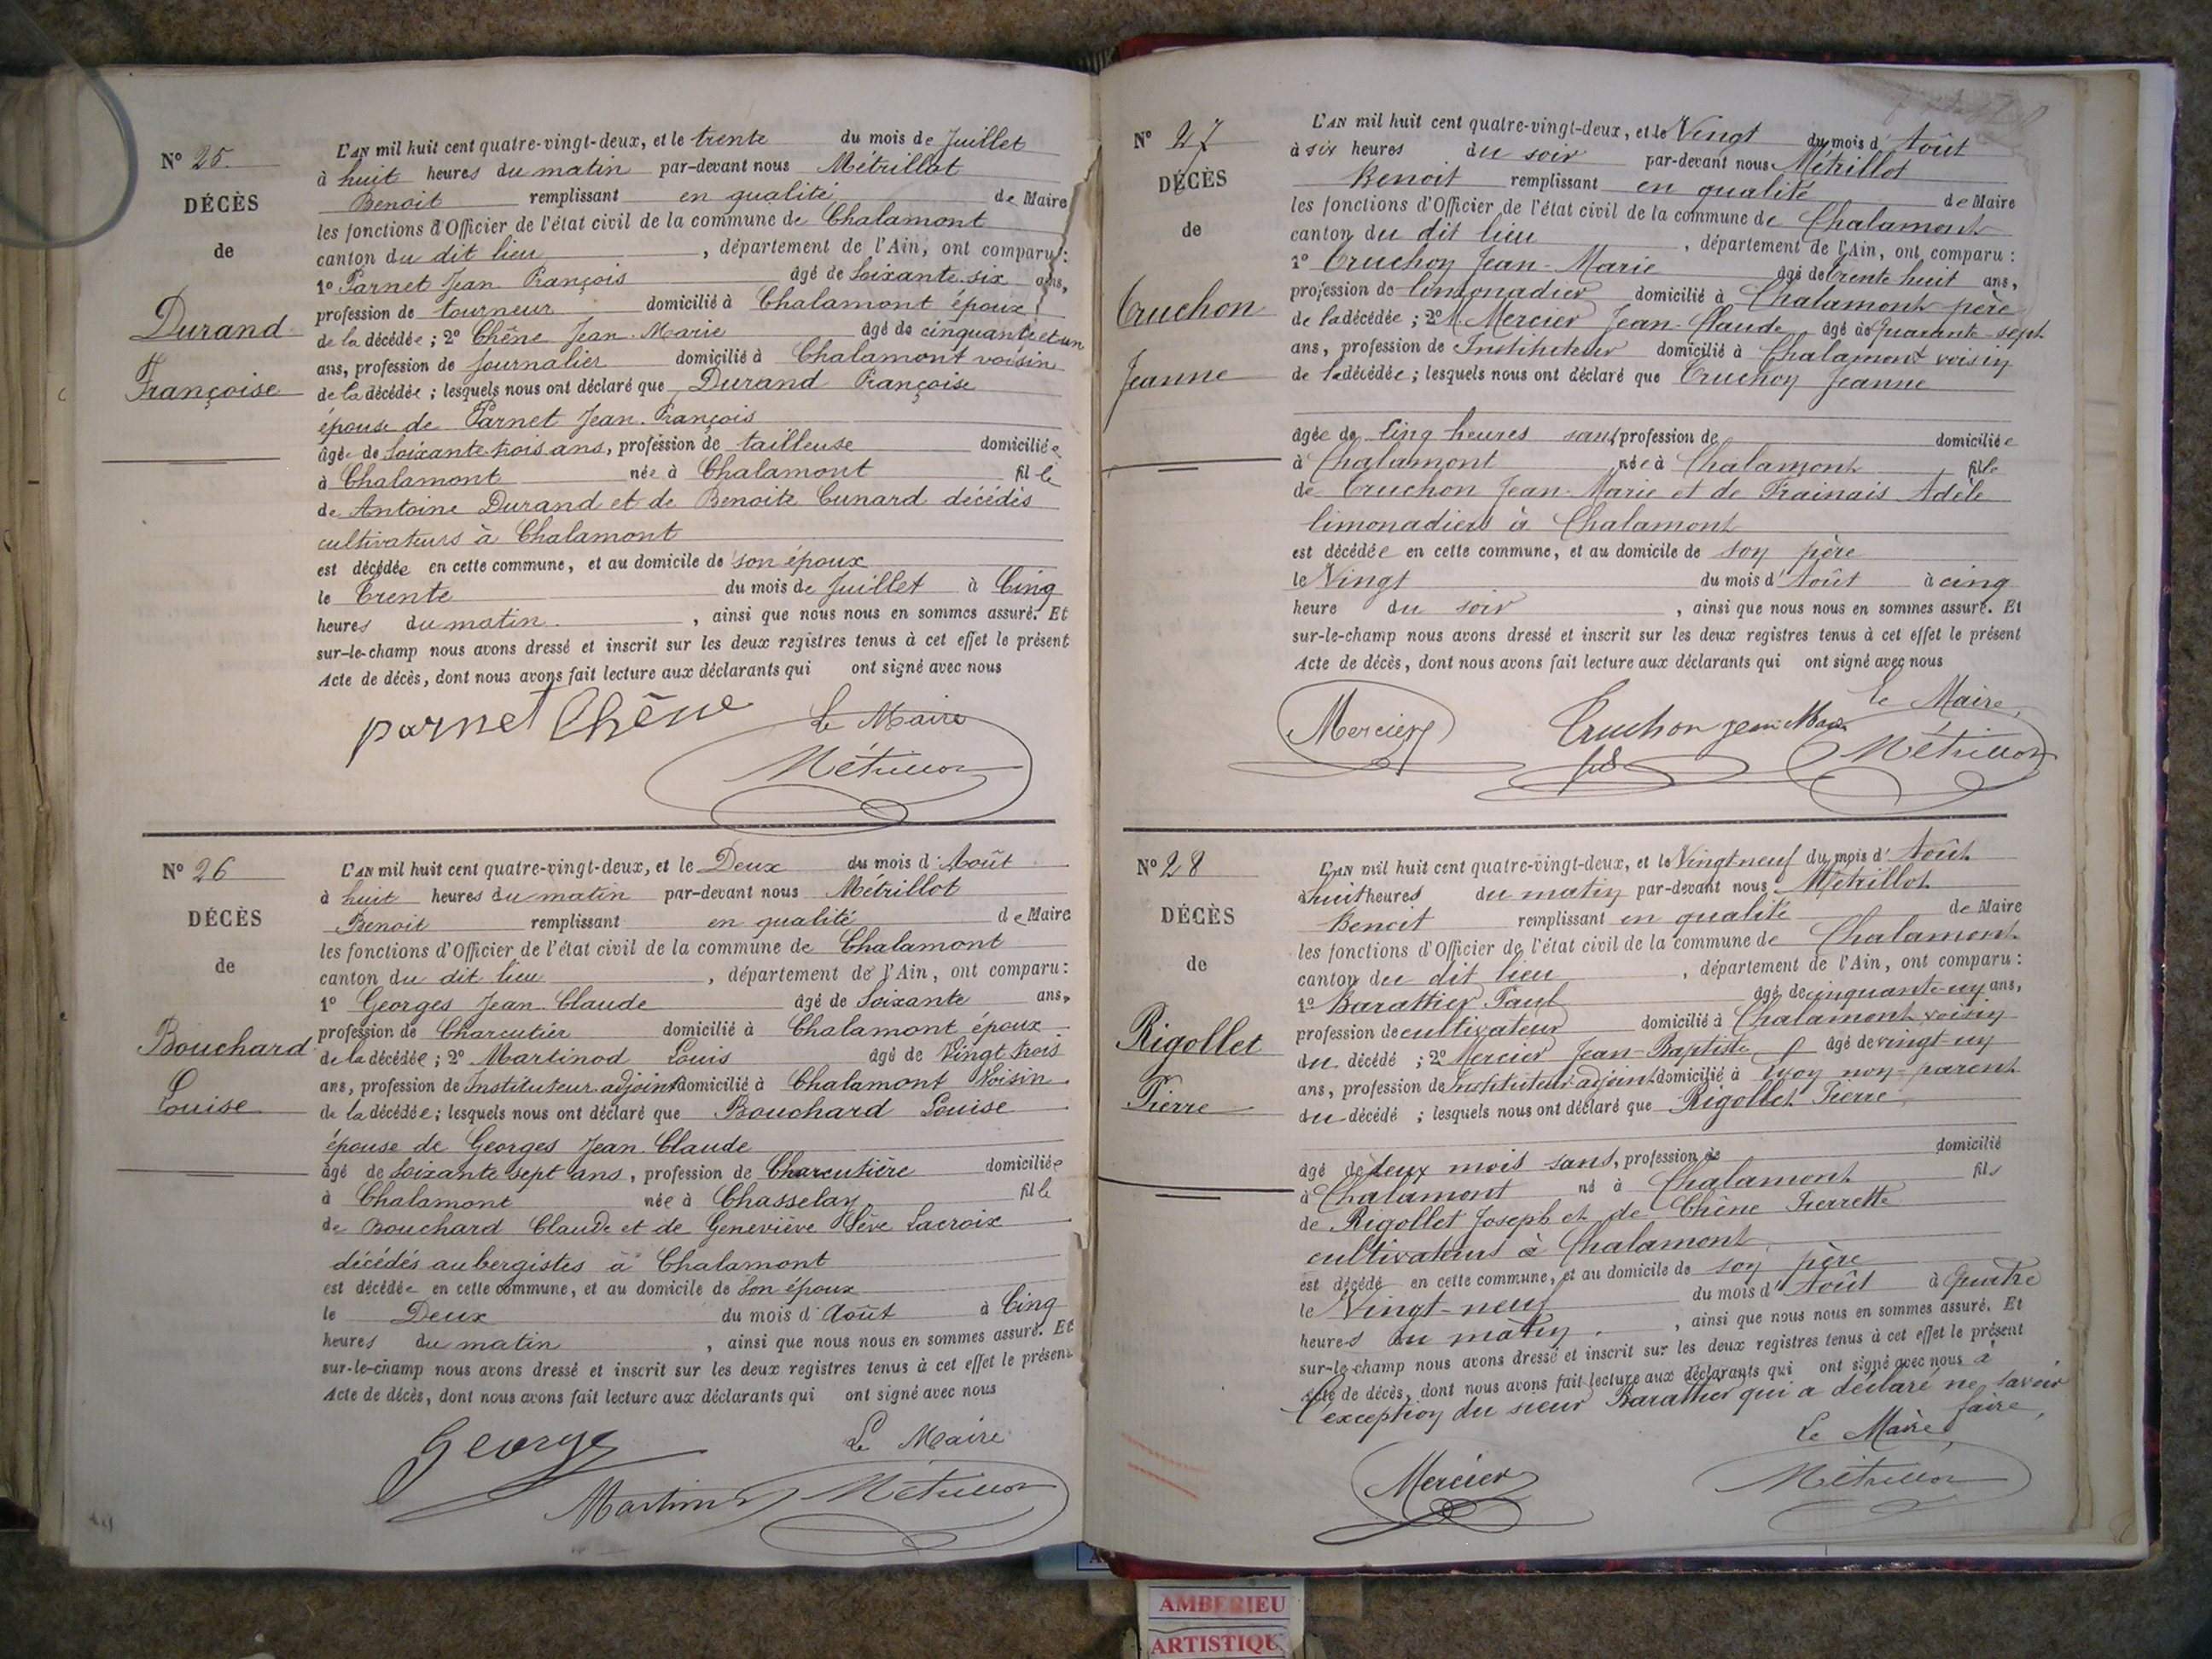 N° 25
DÉCÈS
de
Durand
Françoise
L'AN mil huit cent quatre-vingt-deux, et le trente du mois de Juillet
à huit heures du matin par-devant nous Métrillot
Benoit remplissant en qualité de Maire
les fonctions d'Officier de l'état civil de la commune de Chalamont
canton du dit lieu , département de l'Ain, ont comparu :
1° Parnet Jean François âgé de Soixante six ans,
profession de tourneur domicilié à Chalamont époux
de la décédée ; 2° Chêne Jean Marie âgé de cinquante et un
ans, profession de journalier domicilié à Chalamont voisin
de la décédée ; lesquels nous ont déclaré que Durand Françoise
épouse de Parnet Jean François
âgée de Soixante trois ans, profession de tailleuse domiciliée
à Chalamont née à Chalamont fille
de Antoine Durand et de Benoite Cunard décédés
cultivateurs à Chalamont
est décédée en cette commune, et au domicile de son époux
le trente du mois de Juillet à Cinq
heures du matin , ainsi que nous nous en sommes assuré. Et
sur-le-champ nous avons dressé et inscrit sur les deux registres tenus à cet effet le présent
Acte de décès, dont nous avons fait lecture aux déclarants qui ont signé avec nous
parnet Chêne Le Maire
Métrillot
N° 26
DÉCÈS
de
Bouchard
Louise
L'AN mil huit cent quatre-vingt-deux, et le Deux du mois d'Août
à huit heures du matin par-devant nous Métrillot
Benoit remplissant en qualité de Maire
les fonctions d'Officier de l'état civil de la commune de Chalamont
canton du dit lieu , département de l'Ain, ont comparu :
1° Georges Jean Claude âgé de Soixante ans,
profession de Charcutier domicilié à Chalamont époux
de la décédée ; 2° Martinod Louis âgé de Vingt trois
ans, profession de Instituteur adjoint domicilié à Chalamont Voisin
de la décédée ; lesquels nous ont déclaré que Bouchard Louise
épouse de Georges Jean Claude
âgé de Soixante sept ans, profession de Charcutière domiciliée
à Chalamont née à Chasselay fille
de Bouchard Claude et de Geneviève Sève Lacroix
décédés aubergistes à Chalamont
est décédée en cette commune, et au domicile de Son époux
le Deux du mois d'Août à Cinq
heures du matin , ainsi que nous nous en sommes assuré. Et
sur-le-champ nous avons dressé et inscrit sur les deux registres tenus à cet effet le présent
Acte de décès, dont nous avons fait lecture aux déclarants qui ont signé avec nous
George Le Maire
Martinod Métrillot
N° 27
DÉCÈS
de
Cruchon
Jeanne
L'AN mil huit cent quatre-vingt-deux, et le Vingt du mois d'Août
à six heures du soir par-devant nous Métrillot
Benoit remplissant en qualité de Maire
les fonctions d'Officier de l'état civil de la commune de Chalamont
canton du dit lieu , département de l'Ain, ont comparu :
1° Cruchon Jean-Marie âgé de trente huit ans,
profession de limonadier domicilié à Chalamont père
de la décédée ; 2° M. Mercier Jean-Claude âgé de Quarante-sept
ans, profession de Instituteur domicilié à Chalamont voisin
de la décédée ; lesquels nous ont déclaré que Cruchon Jeanne
âgée de Cinq heures sans profession de domiciliée
à Chalamont née à Chalamont fille
de Cruchon Jean-Marie et de Frainais Adèle
limonadiers à Chalamont
est décédée en cette commune, et au domicile de son père
le Vingt du mois d'Août à cinq
heure du soir , ainsi que nous nous en sommes assuré. Et
sur-le-champ nous avons dressé et inscrit sur les deux registres tenus à cet effet le présent
Acte de décès, dont nous avons fait lecture aux déclarants qui ont signé avec nous
Le Maire,
Mercier Cruchon jean Marie Métrillot
N° 28
DÉCÈS
de
Rigollet
Pierre
L'AN mil huit cent quatre-vingt-deux, et le Vingt neuf du mois d'Août
à huit heures du matin par-devant nous Métrillot
Benoit remplissant en qualité de Maire
les fonctions d'Officier de l'état civil de la commune de Chalamont
canton du dit lieu , département de l'Ain, ont comparu :
1° Barattier Paul âgé de cinquante-un ans,
profession de cultivateur domicilié à Chalamont voisin
du décédé ; 2° Mercier Jean-Baptiste âgé de vingt-un
ans, profession de Instituteur-adjoint domicilié à non-parent
du décédé ; lesquels nous ont déclaré que Rigollet Pierre
âgé de deux mois sans, profession de domicilié
à Chalamont né à Chalamont fils
de Rigollet Joseph et de Chêne Pierrette
cultivateurs à Chalamont
est décédé en cette commune, et au domicile de son père
le Vingt-neuf du mois d'Août à Quatre
heures du matin , ainsi que nous nous en sommes assuré. Et
sur-le-champ nous avons dressé et inscrit sur les deux registres tenus à cet effet le présent
Acte de décès, dont nous avons fait lecture aux déclarants qui ont signé avec nous à
l'exception du sieur Barattier qui a déclaré ne savoir
faire,
Le Maire,
Mercier Métrillot
AMBERIEU
ARTISTIQU